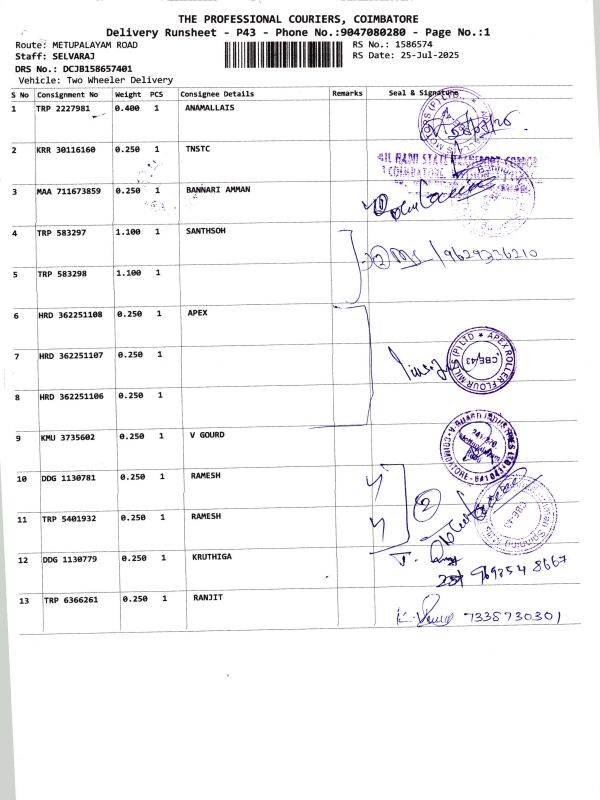 THE PROFESSIONAL COURIERS, COIMBATORE
Delivery Runsheet - P43 - Phone No.:9047080280 - Page No.:1
Route: METUPALAYAM ROAD RS No.: 1586574
Staff: SELVARAJ RS Date: 25-Jul-2025
DRS No.: DCJB158657401
Vehicle: Two Wheeler Delivery
S No Consignment No Weight PCS Consignee Details Remarks Seal & Signature
1 TRP 2227981 0.400 1 ANAMALLAIS
2 KRR 30116160 0.250 1 TNSTC
3 MAA 711673859 0.250 1 BANNARI AMMAN
4 TRP 583297 1.100 1 SANTHSOH
9629336210
5 TRP 583298 1.100 1
6 HRD 362251108 0.250 1 APEX
APEX ROLLER FLOUR MILLS (P) LTD
CBE-43
7 HRD 362251107 0.250 1
8 HRD 362251106 0.250 1
9 KMU 3735602 0.250 1 V GOURD
10 DDG 1130781 0.250 1 RAMESH
2
11 TRP 5401932 0.250 1 RAMESH
CBE-43
12 DDG 1130779 0.250 1 KRUTHIGA
13 TRP 6366261 0.250 1 RANJIT
7338730301